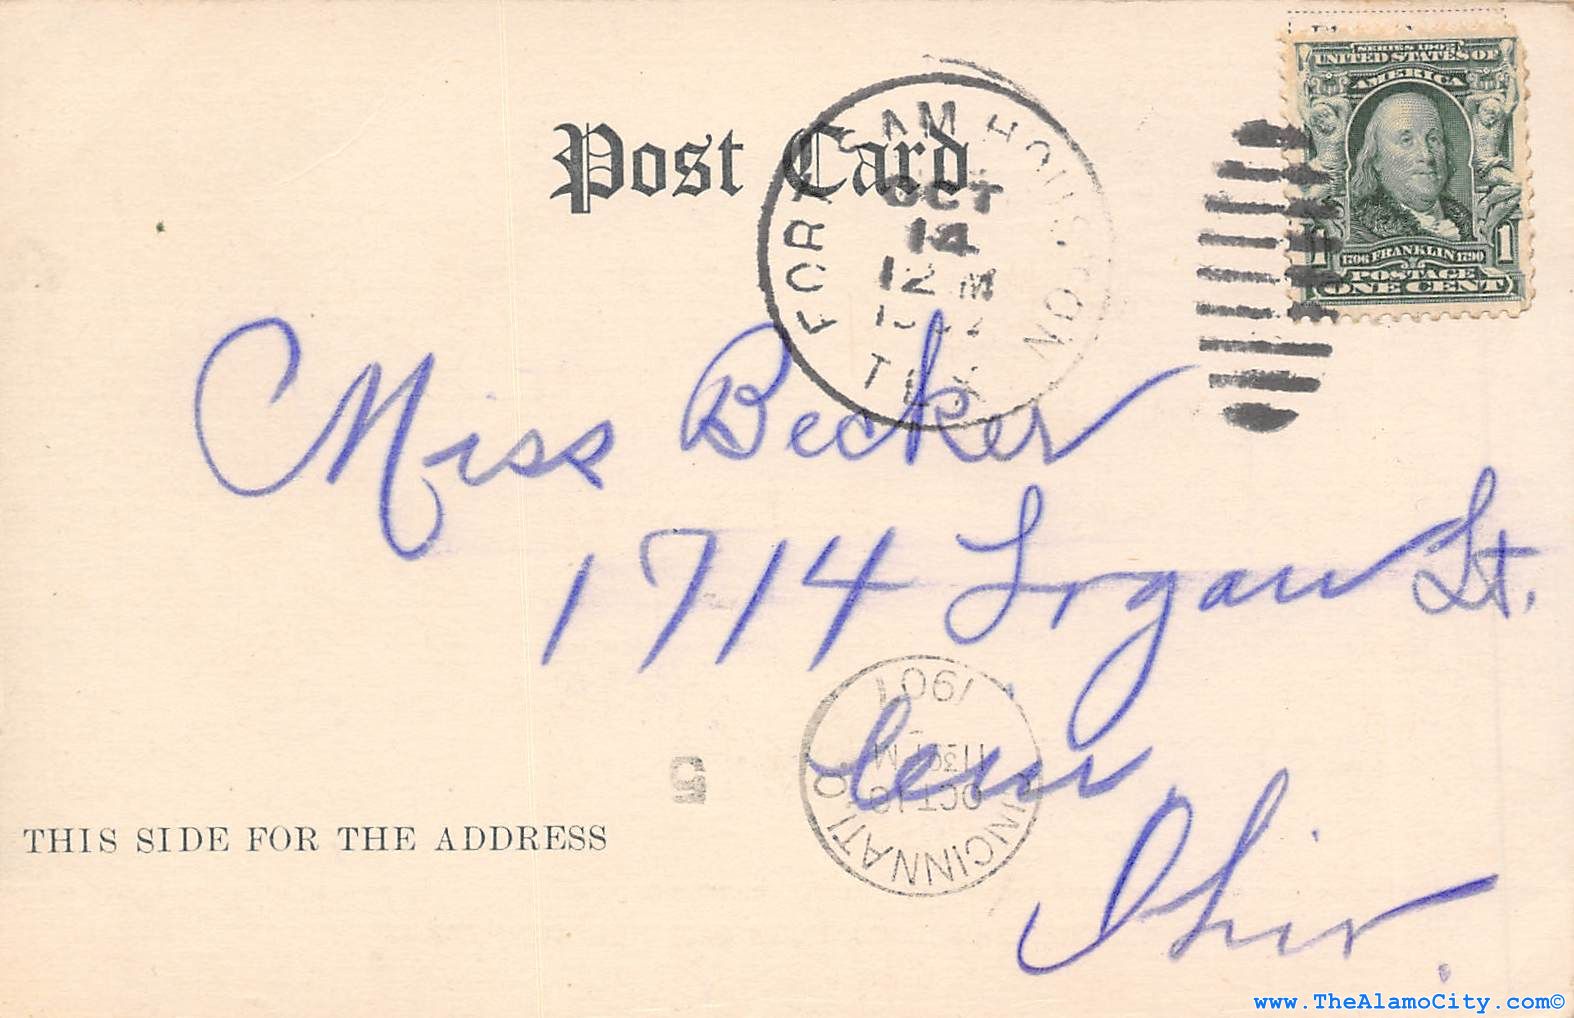 SERIES 1902
UNITED STATES OF
AMERICA
1706 FRANKLIN 1790
1 1
POSTAGE
ONE CENT
Post Card
FORT SAM HOUSTON
OCT
14
12 M
TEX
Miss Becker
1714 Logan St.
Cin,
Ohio.
CINCINNATI, O.
1130 PM
5
THIS SIDE FOR THE ADDRESS
www.TheAlamoCity.com©